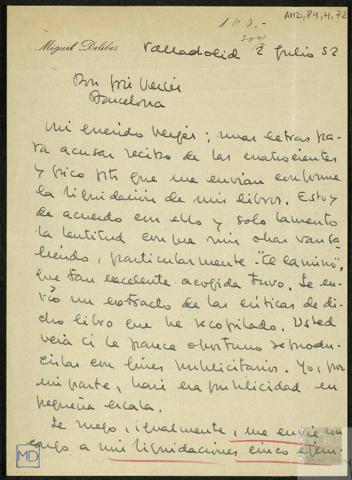 AMD,84,4,72
Miguel Delibes
Valladolid 2 julio 52
Don José Vergés
Barcelona
Mi querido Vergés; unas letras pa-
ra acusar recibo de las cuatrocientas
y pico pts que me envían conforme
la liquidación de mis libros. Estoy
de acuerdo con ello y solo lamento
la lentitud con que mis obras van sa-
liendo, particularmente "El camino",
que tan excelente acogida tuvo. Le en-
vío un extracto de las críticas de di-
cho libro que he recopilado. Usted
verá si le parece oportuno reprodu-
cirlas con fines publicitarios. Yo, por
mi parte, haré su publicidad en
pequeña escala.
Le ruego, igualmente, me envíe con
cargo a mis liquidaciones cinco ejem-
MD